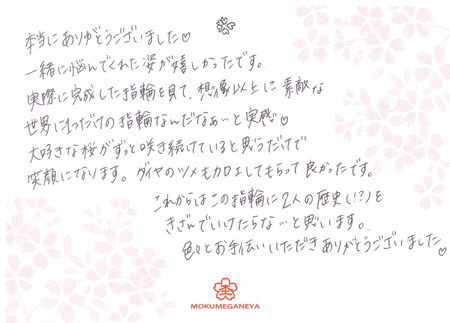 本当にありがとうございました♡
一緒に悩んでくれた姿が嬉しかったです。
実際に完成した指輪を見て、想像以上に素敵な
世界に1つだけの指輪なんだなぁ…と実感♡
大好きな桜がずっと咲き続けていると思うだけで
笑顔になります。ダイヤのツメもカロエしてもらって良かったです。
これからはこの指輪に2人の歴史(!?)を
きざんでいけたらな…と思います。
色々とお手伝いいただきありがとうございました♡
MOKUMEGANEYA